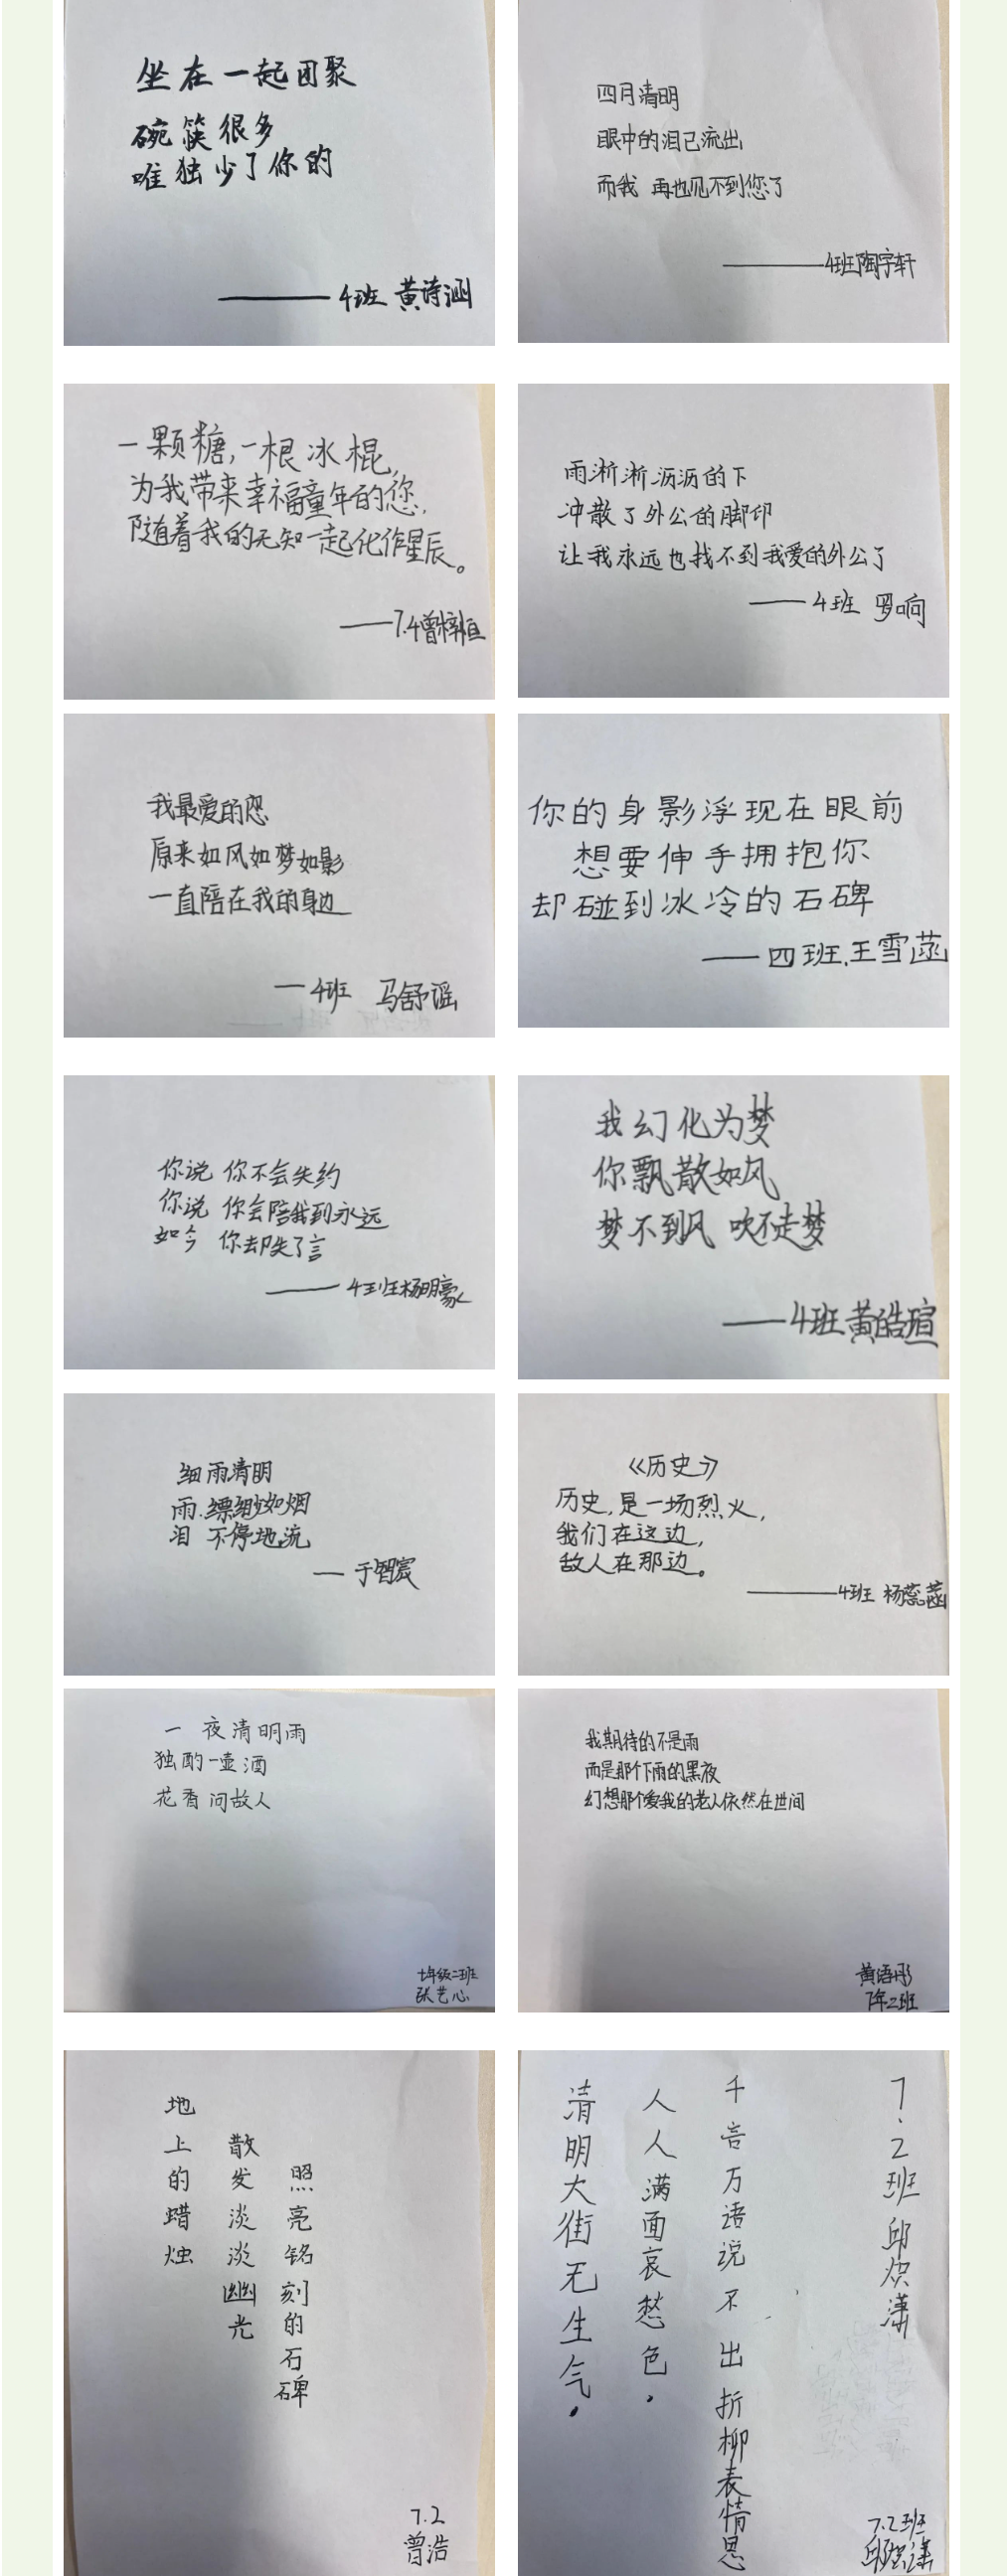 坐在一起团聚
碗筷很多
唯独少了你的
——4班 黄诗涵
四月清明
眼中的泪已流出
而我 再也见不到您了
——4班陶宇轩
一颗糖,一根冰棍,
为我带来幸福童年的您,
随着我的无知一起化作星辰。
——7.4曾梓恒
雨淅淅沥沥的下
冲散了外公的脚印
让我永远也找不到我爱的外公了
——4班 罗响
我最爱的您
原来如风如梦如影
一直陪在我的身边
—4班 马舒谣
你的身影浮现在眼前
想要伸手拥抱你
却碰到冰冷的石碑
——四班.王雪菡
你说 你不会失约
你说 你会陪我到永远
如今 你却失了言
——4班杨明豪
我幻化为梦
你飘散如风
梦不到风 吹不走梦
——4班黄皓瑄
细雨清明
雨.缥缈如烟
泪 不停地流
—于智宸
《历史》
历史,是一场烈火,
我们在这边,
敌人在那边。
——4班 杨蕊菡
一夜清明雨
独酌一壶酒
花香问故人
七年级二班
张艺心
我期待的不是雨
而是那个下雨的黑夜
幻想那个爱我的老人依然在世间
黄语彤
7年2班
地上的蜡烛
散发淡淡幽光
照亮铭刻的石碑
7.2
曾浩
清明大街无生气,
人人满面哀愁色,
千言万语说不出折柳表情思
7.2班邱炽潇
7.2班
邱炽潇